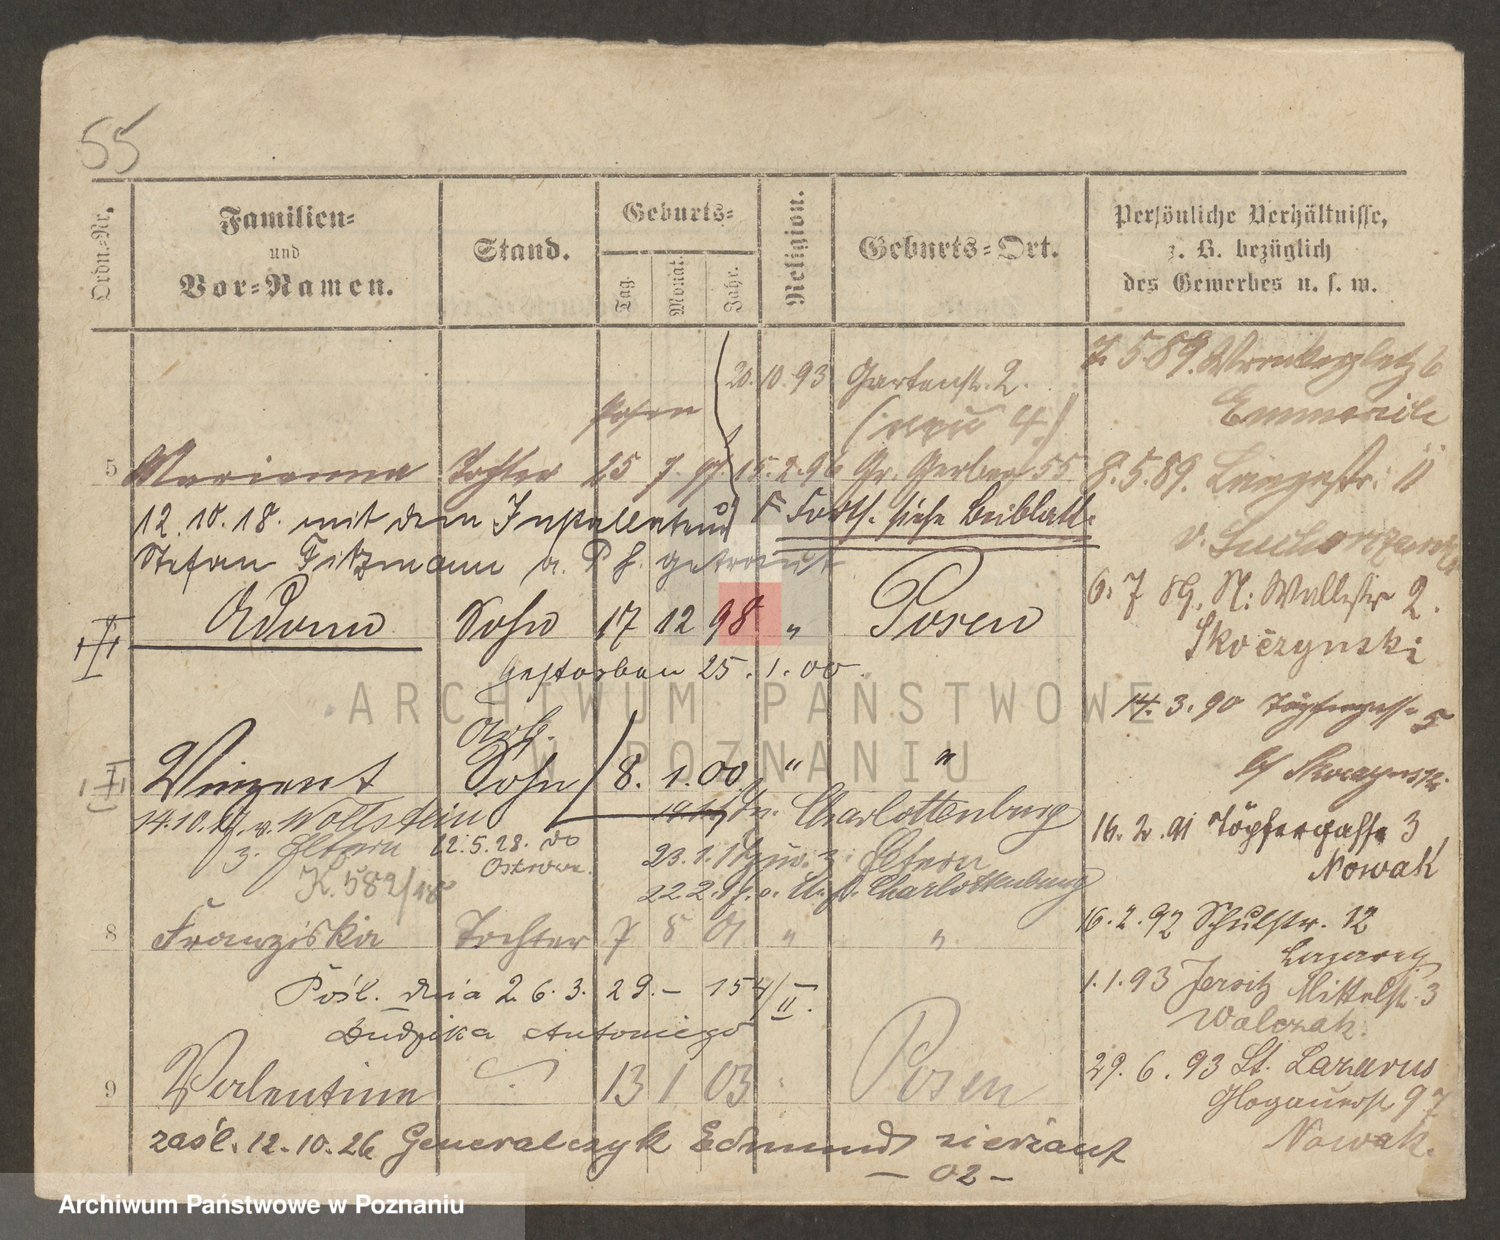 55
Ordn.-Nr.
Familien-
und
Vor-Namen.
Stand.
Geburts-
Tag.
Monat.
Jahr.
Religion.
Geburts-Ort.
Persönliche Verhältnisse,
z. B. bezüglich
des Gewerbes u. s. w.
20.10.93 Gartenstr. 2.
(neu 4.)
Posen
5 Marianna Tochter 25 7. 97. 15.2.96 Gr. Gerberstr 55
12.10.18. mit dem Installateur
F Forts. siehe Beiblatt.
Stefan Fitzmann a. P S. getraut
Adam Sohn 17 12 98 " Posen
Gestorben 25.1.00
Arb.
Vinzent Sohn 8. 1. 00. " "
14.10. v. Wollstein Charlottenburg
z. Eltern 12.5.28. do
Ostrowo.
23.1. z. Eltern
K. 582/18
22.2. Charlottenburg
8 Franziska Tochter 7 8 01 " "
Pośl. dnia 26.3.29.- 154/II.
Dudzika Antoniego
9 Valentine 13 1 03 Posen
zaśl. 12.10.26 Generalczyk Edmund sierżant
- 02 -
7.5.89. Wronkerplatz 6
Emmerich
8.5.89. Langestr. 11
v. Sucharzewski
6. 7 89. St. Wallistr 2.
Skoczynski
14.3.90 Töpfergasse 5
b/ Skoczynski.
16.2.91 Töpfergasse 3
Nowak
16.2.92 Schulstr. 12
1.1.93 Jersitz Mittelstr. 3
Walczak.
29.6.93 St. Lazarus
Glogauerstr 97
Nowak.
ARCHIWUM PAŃSTWOWE
W POZNANIU
Archiwum Państwowe w Poznaniu